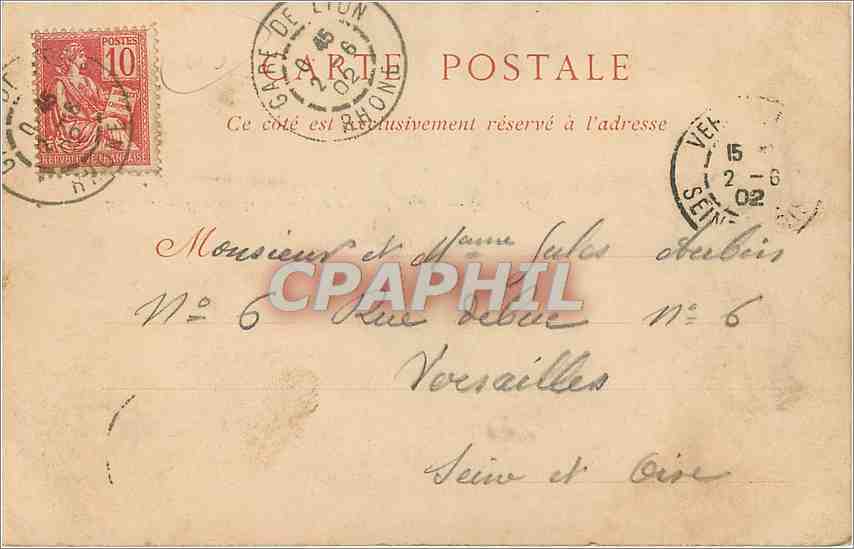 POSTES
10
REPUBLIQUE FRANCAISE
GARE DE LYON
15
2 - 6
02
RHONE
CARTE POSTALE
Ce côté est exclusivement réservé à l'adresse
15
2 - 6
02
SEINE
Monsieur et Mame Jules Aubin
No 6 Rue Debuc No 6
Versailles
Seine et Oise
CPAPHIL